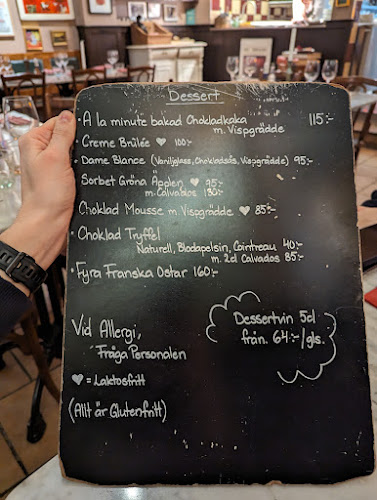 Dessert
• A la minute bakad Chokladkaka 115:-
m. Vispgrädde
• Creme Brûlée ♥ 100:-
• Dame Blance (Vaniljglass, Chokladsås, Vispgrädde) 95:-
Sorbet Gröna Äpplen ♥ 95:-
m. Calvados 130:-
Choklad Mousse m Vispgrädde ♥ 85:-
• Choklad Tryffel
Naturell, Blodapelsin, Cointreau 40:-
m. 2cl Calvados 85:-
• Fyra Franska Ostar 160:-
Vid Allergi,
Fråga Personalen
♥ = Laktosfritt
(Allt är Glutenfritt)
Dessertvin 5cl
från. 64:-/gls.